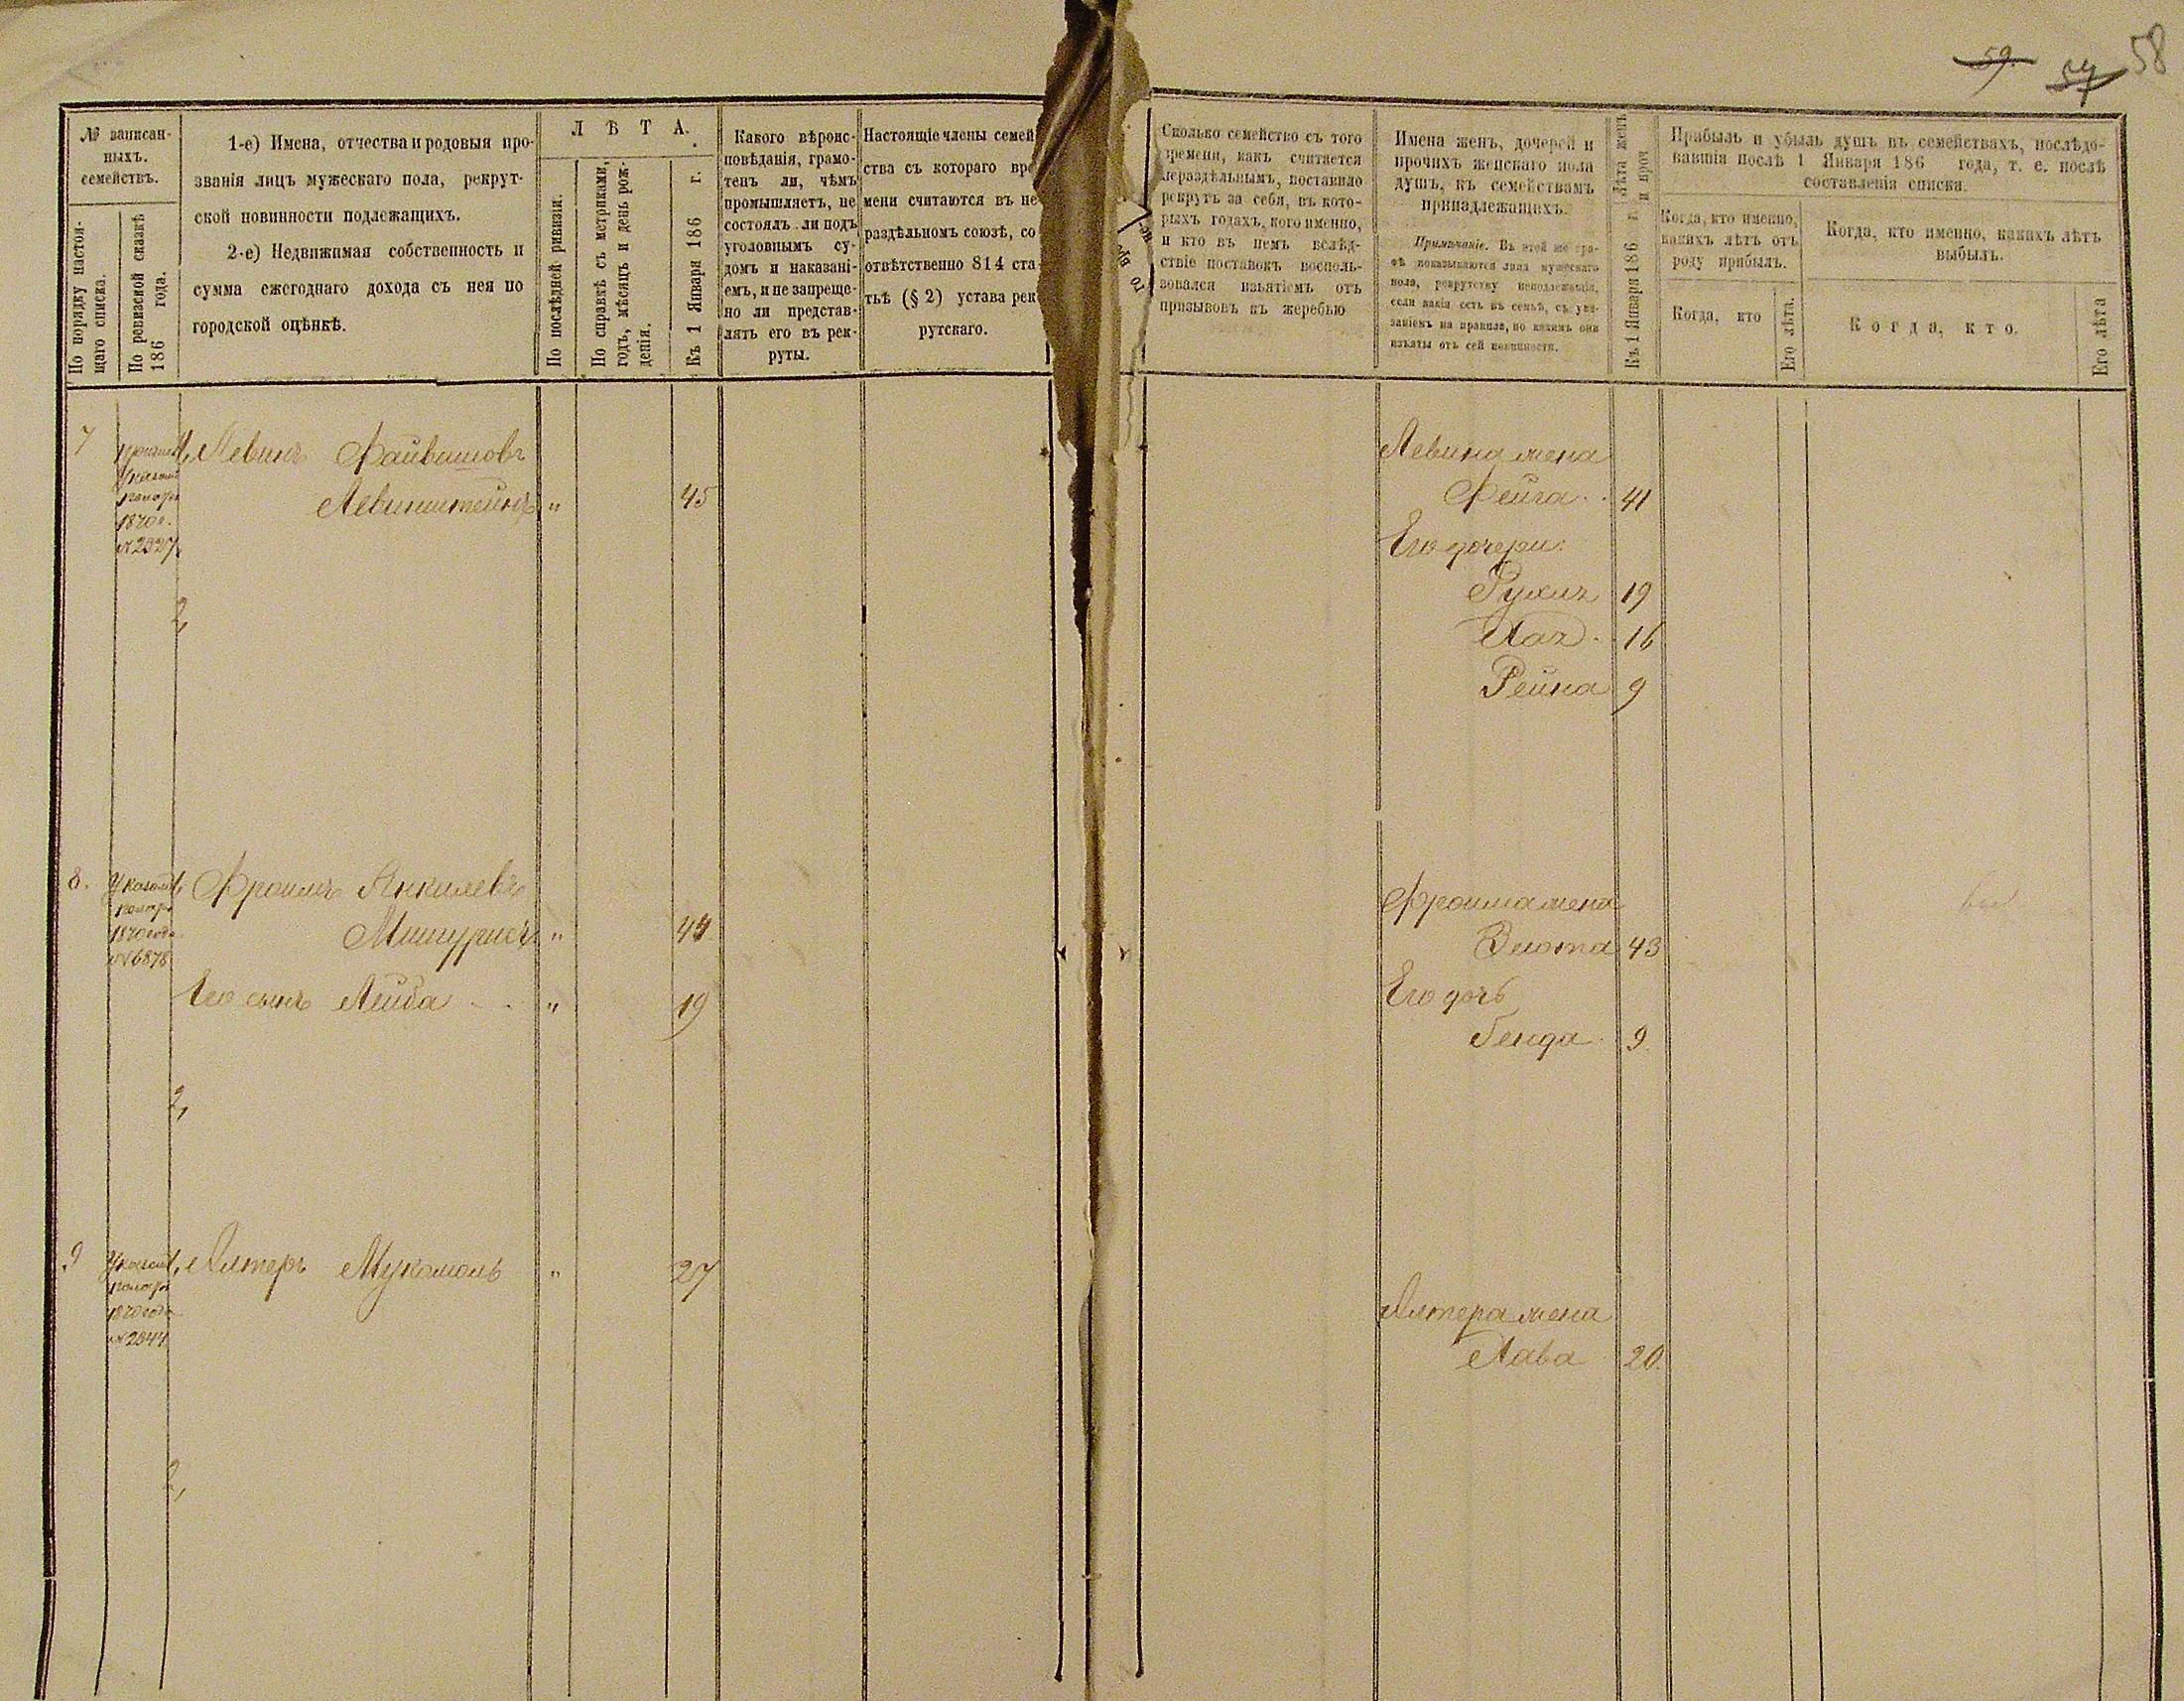 59.
57
58
№ записан-
ныхъ.
семействъ.
По порядку настоя-
щаго списка.
По ревизской сказкѣ
186 года.
1-е) Имена, отчества и родовыя про-
званія лицъ мужескаго пола, рекрут-
ской повинности подлежащихъ.
2-е) Недвижимая собственность и
сумма ежегоднаго дохода съ нея по
городской оцѣнкѣ.
ЛѢТА.
По послѣдней ривизіи.
По справкѣ съ метриками,
годъ, мѣсяцъ и день рож-
денія.
Къ 1 Января 186 г.
Какого вѣроис-
повѣданія, грамо-
тенъ ли, чѣмъ
промышляетъ, не
состоялъ ли подъ
уголовнымъ су-
домъ и наказані-
емъ, и не запреще-
но ли представ-
лять его въ рек-
руты.
Настоящіе члены семей
ства съ котораго вре
мени считаются въ не
раздѣльномъ союзѣ, со
отвѣтственно 814 ста-
тьѣ (§ 2) устава рек
рутскаго.
Сколько семейство съ того
времени, какъ считается
нераздѣльнымъ, поставило
рекрутъ за себя, въ кото-
рыхъ годахъ, кого именно,
и кто въ немъ вслѣд-
ствіе поставокъ восполь-
зовался изъятіемъ отъ
призывовъ къ жеребью
Имена женъ, дочерей и
прочихъ женскаго пола
душъ, къ семействамъ
принадлежащихъ.
Примѣчаніе. Въ этой же гра-
фѣ показываются лица мужескаго
пола, рекрутству неподлежащія,
если какія есть въ семьѣ, съ ука-
заніемъ на правила, по какимъ они
изъяты отъ сей повинности.
Лѣта женъ
и проч
Къ 1 Января 186 г.
Прибыль и убыль душъ въ семействахъ, послѣдо-
вавшія послѣ 1 Января 186 года, т. е. послѣ
составленія списка.
Когда, кто именно,
какихъ лѣтъ отъ
роду прибылъ.
Когда, кто
Его лѣта.
Когда, кто именно, какихъ лѣтъ
выбылъ.
Когда, кто.
Его лѣта
7
1870 г.
№ 2327
1, Левинъ Файвишовъ
Левинштейнъ " 45
2,
Левина жена
Фейга 41
Его дочери:
19
16
Рейна 9
8.
Указомъ
1870 года
№ 6878
1, Фроимъ Янкилевъ
" 44
Его сынъ Лейба " 19
2,
Фроима жена
Злота 43
Его дочь
Генда 9
9
Указомъ
1870 года
№ 2344
1, Алтеръ Мукомоль " 27
2,
Алтера жена
20.